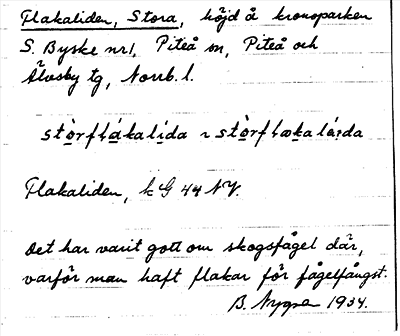 Flakaliden, Stora, höjd å kronoparken
S. Byske nr 1, Piteå sn, Piteå och
Älvsby tg, Norrb. l.
stòrflákalída ~ stòrflakalá:da
Flakaliden, k G 44 NV.
Det har varit gott om skogsfågel där,
varför man haft flakar för fågelfångst.
B. Nyman 1934.